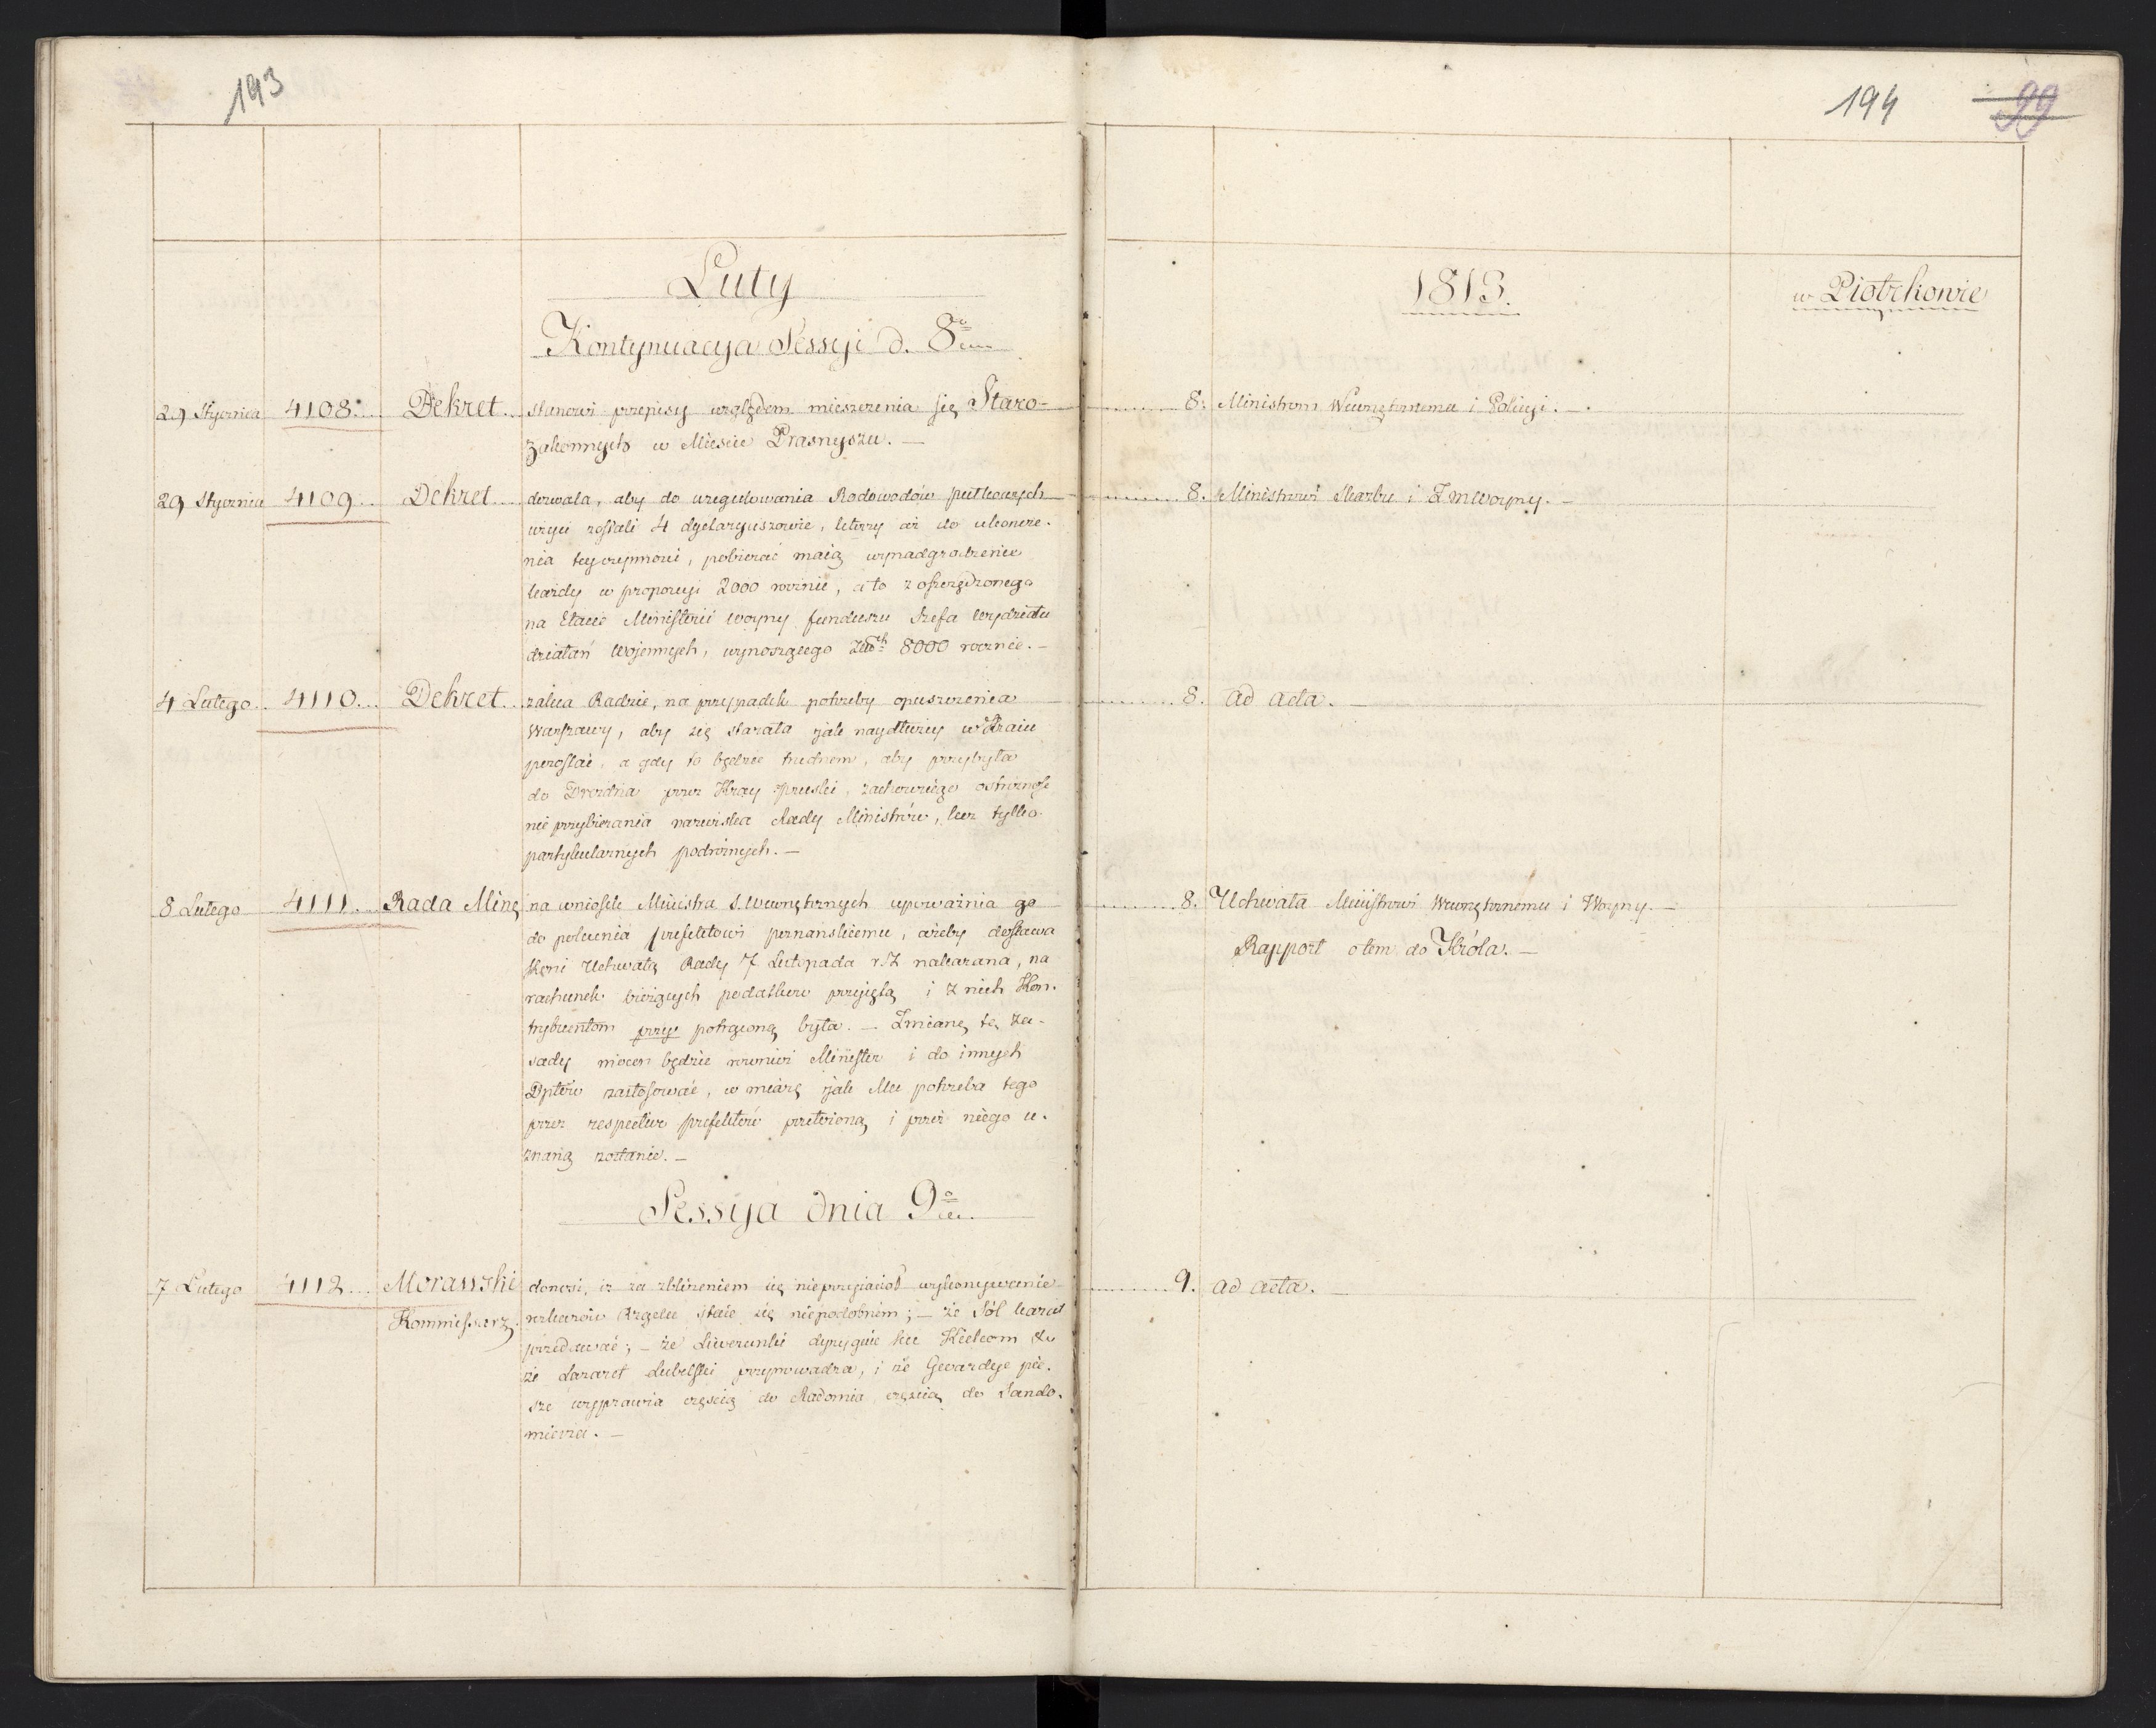 193
194
99
Luty
1813.
w Piotrkowie
Kontynuacya Sessyi d. 8º
29 Stycznia 4108. Dekret. stanowi przepisy względem mieszczenia się Staro-
zakonnych w Miescie Prasnyszu. —
8. Ministrom Wewnętrznemu i Policyi. —
29 Stycznia 4109. Dekret dozwala, aby do uregulowania Rodowodów pułkowych
użyci zostali 4 dyetaryuszowie, którzy aż do ukończe-
nia tey czynności, pobierać maią wynadgrodzenie
każdy w proporcyi 2000 rocznie, a to z oszczędzonego
na Etacie Ministerii woyny funduszu Szefa wydziału
działań wojennych, wynoszącego 8000 rocznie. —
8. Ministrowi Skarbu i Woyny. —
4 Lutego 4110. Dekret. zaleca Radzie, na przypadek potrzeby opuszczenia
Warszawy, aby się starała jak naydłużey w Kraiu
pozostać, a gdy to będzie trudnem, aby przybyła
do Drezdna przez Kray pruski, zachowuiąc ostrożność
nie przybierania nazwiska Rady Ministrów, lecz tylko
partykularnych podróżnych. —
8. ad acta. —
8 Lutego 4111. Rada Minę na wniosek Ministra S. Wewnętrznych upoważnia go
do polecenia prefektowi poznanskiemu, ażeby dostawa
Koni Uchwałą Rady 7 Listopada r. z. nakazana, na
rachunek bieżących podatków przyiętą i z nich Kon-
trybuentom przy potrąconą była. — Zmianę tę za-
sady mocen będzie również Minister i do innych
Dptów zastosować, w miarę jak Mu potrzeba tego
przez respective prefektów przełożoną i przez niego u-
znaną zostanie. —
8. Uchwała Ministrowi Wewnętrznemu i Woyny. —
Rapport o tem do Króla. —
Sessyja dnia 9º
7 Lutego 4112. Morawski donosi, iż za zbliżeniem się nieprzyiaciół wykonywanie
Kommissarz. rozkazów Rządu staie się niepodobnem; — że Sól kazał
przedawać; — że Liwerunki dyryguie ku Kielcom &
że Lazaret Lubelski przeprowadza, i że Gwardye pie-
sze wyprawia częścią do Radomia częścią do Sando-
mierza. —
9. ad acta. —